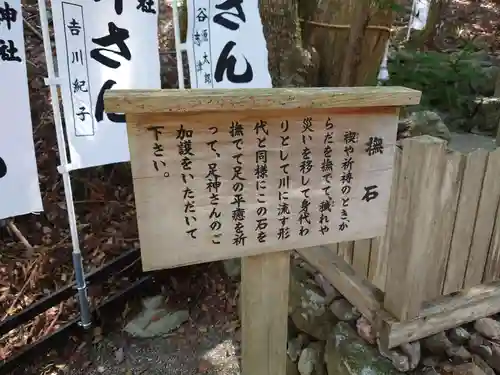 撫石
禊や祈祷のときか
らだを撫で、穢れや
災いを移して身代わ
りとして川に流す形
代と同様にこの石を
撫でて足の平癒を祈
って、足神さんのご
加護をいただいて
下さい。
さん
谷
源太郎
さん
吉川紀子
神社